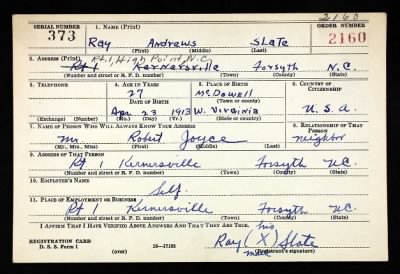 2160
SERIAL NUMBER 1. NAME (Print) ORDER NUMBER
373 Ray Andrews Slate 2160
(First) (Middle) (Last)
Rt. 1, High Point, N.C.
2. ADDRESS (Print)
Rt 1 Kernersville Forsyth N.C.
(Number and street or R. F. D. number) (Town) (County) (State)
3. TELEPHONE 4. AGE IN YEARS 5. PLACE OF BIRTH 6. COUNTRY OF CITIZENSHIP
27 McDowell
DATE OF BIRTH (Town or county)
Apr 23 1913 W. Virginia U.S.A.
(Exchange) (Number) (Mo.) (Day) (Yr.) (State or country)
7. NAME OF PERSON WHO WILL ALWAYS KNOW YOUR ADDRESS 8. RELATIONSHIP OF THAT PERSON
Mr. Robert Joyce neighbor
(Mr., Mrs., Miss) (First) (Middle) (Last)
9. ADDRESS OF THAT PERSON
Rt 1 Kernersville Forsyth N.C.
(Number and street or R. F. D. number) (Town) (County) (State)
10. EMPLOYER'S NAME
Self.
11. PLACE OF EMPLOYMENT OR BUSINESS
Rt 1 Kernersville Forsyth N.C.
(Number and street or R. F. D. number) (Town) (County) (State)
I AFFIRM THAT I HAVE VERIFIED ABOVE ANSWERS AND THAT THEY ARE TRUE.
his
Ray (X) Slate
mark
REGISTRATION CARD
D. S. S. Form 1 (over) 16—17105 (Registrant's signature)